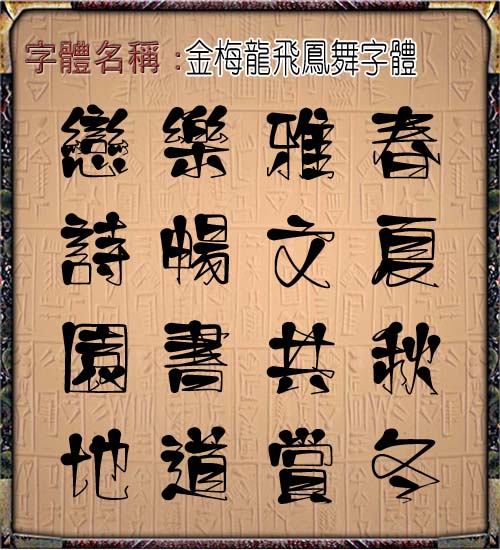 字體名稱 :金梅龍飛鳳舞字體
春夏秋冬
雅文共賞
樂暢書道
戀詩園地